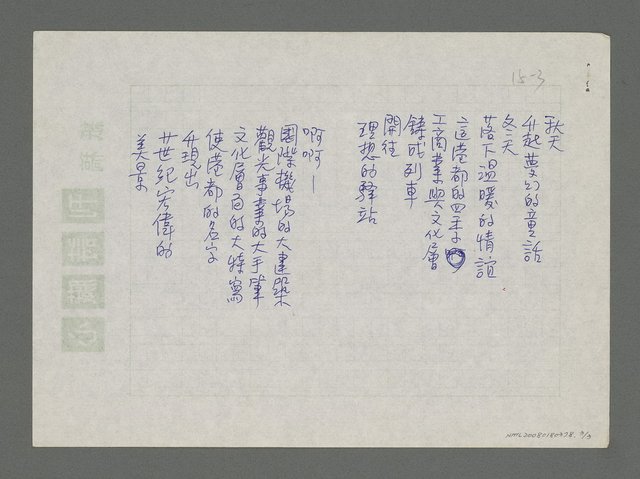 15-3
秋天
升起夢幻的童話
冬天
落下溫暖的情誼
這港都的四季
工商業與文化層
鑄成列車
開往
理想的驛站
啊啊—
國際機場的大建築
觀光事業的大手筆
文化層面的大特寫
使港都的名字
升現出
廿世紀宏偉的
美景
NMTL20080180378. 3/3